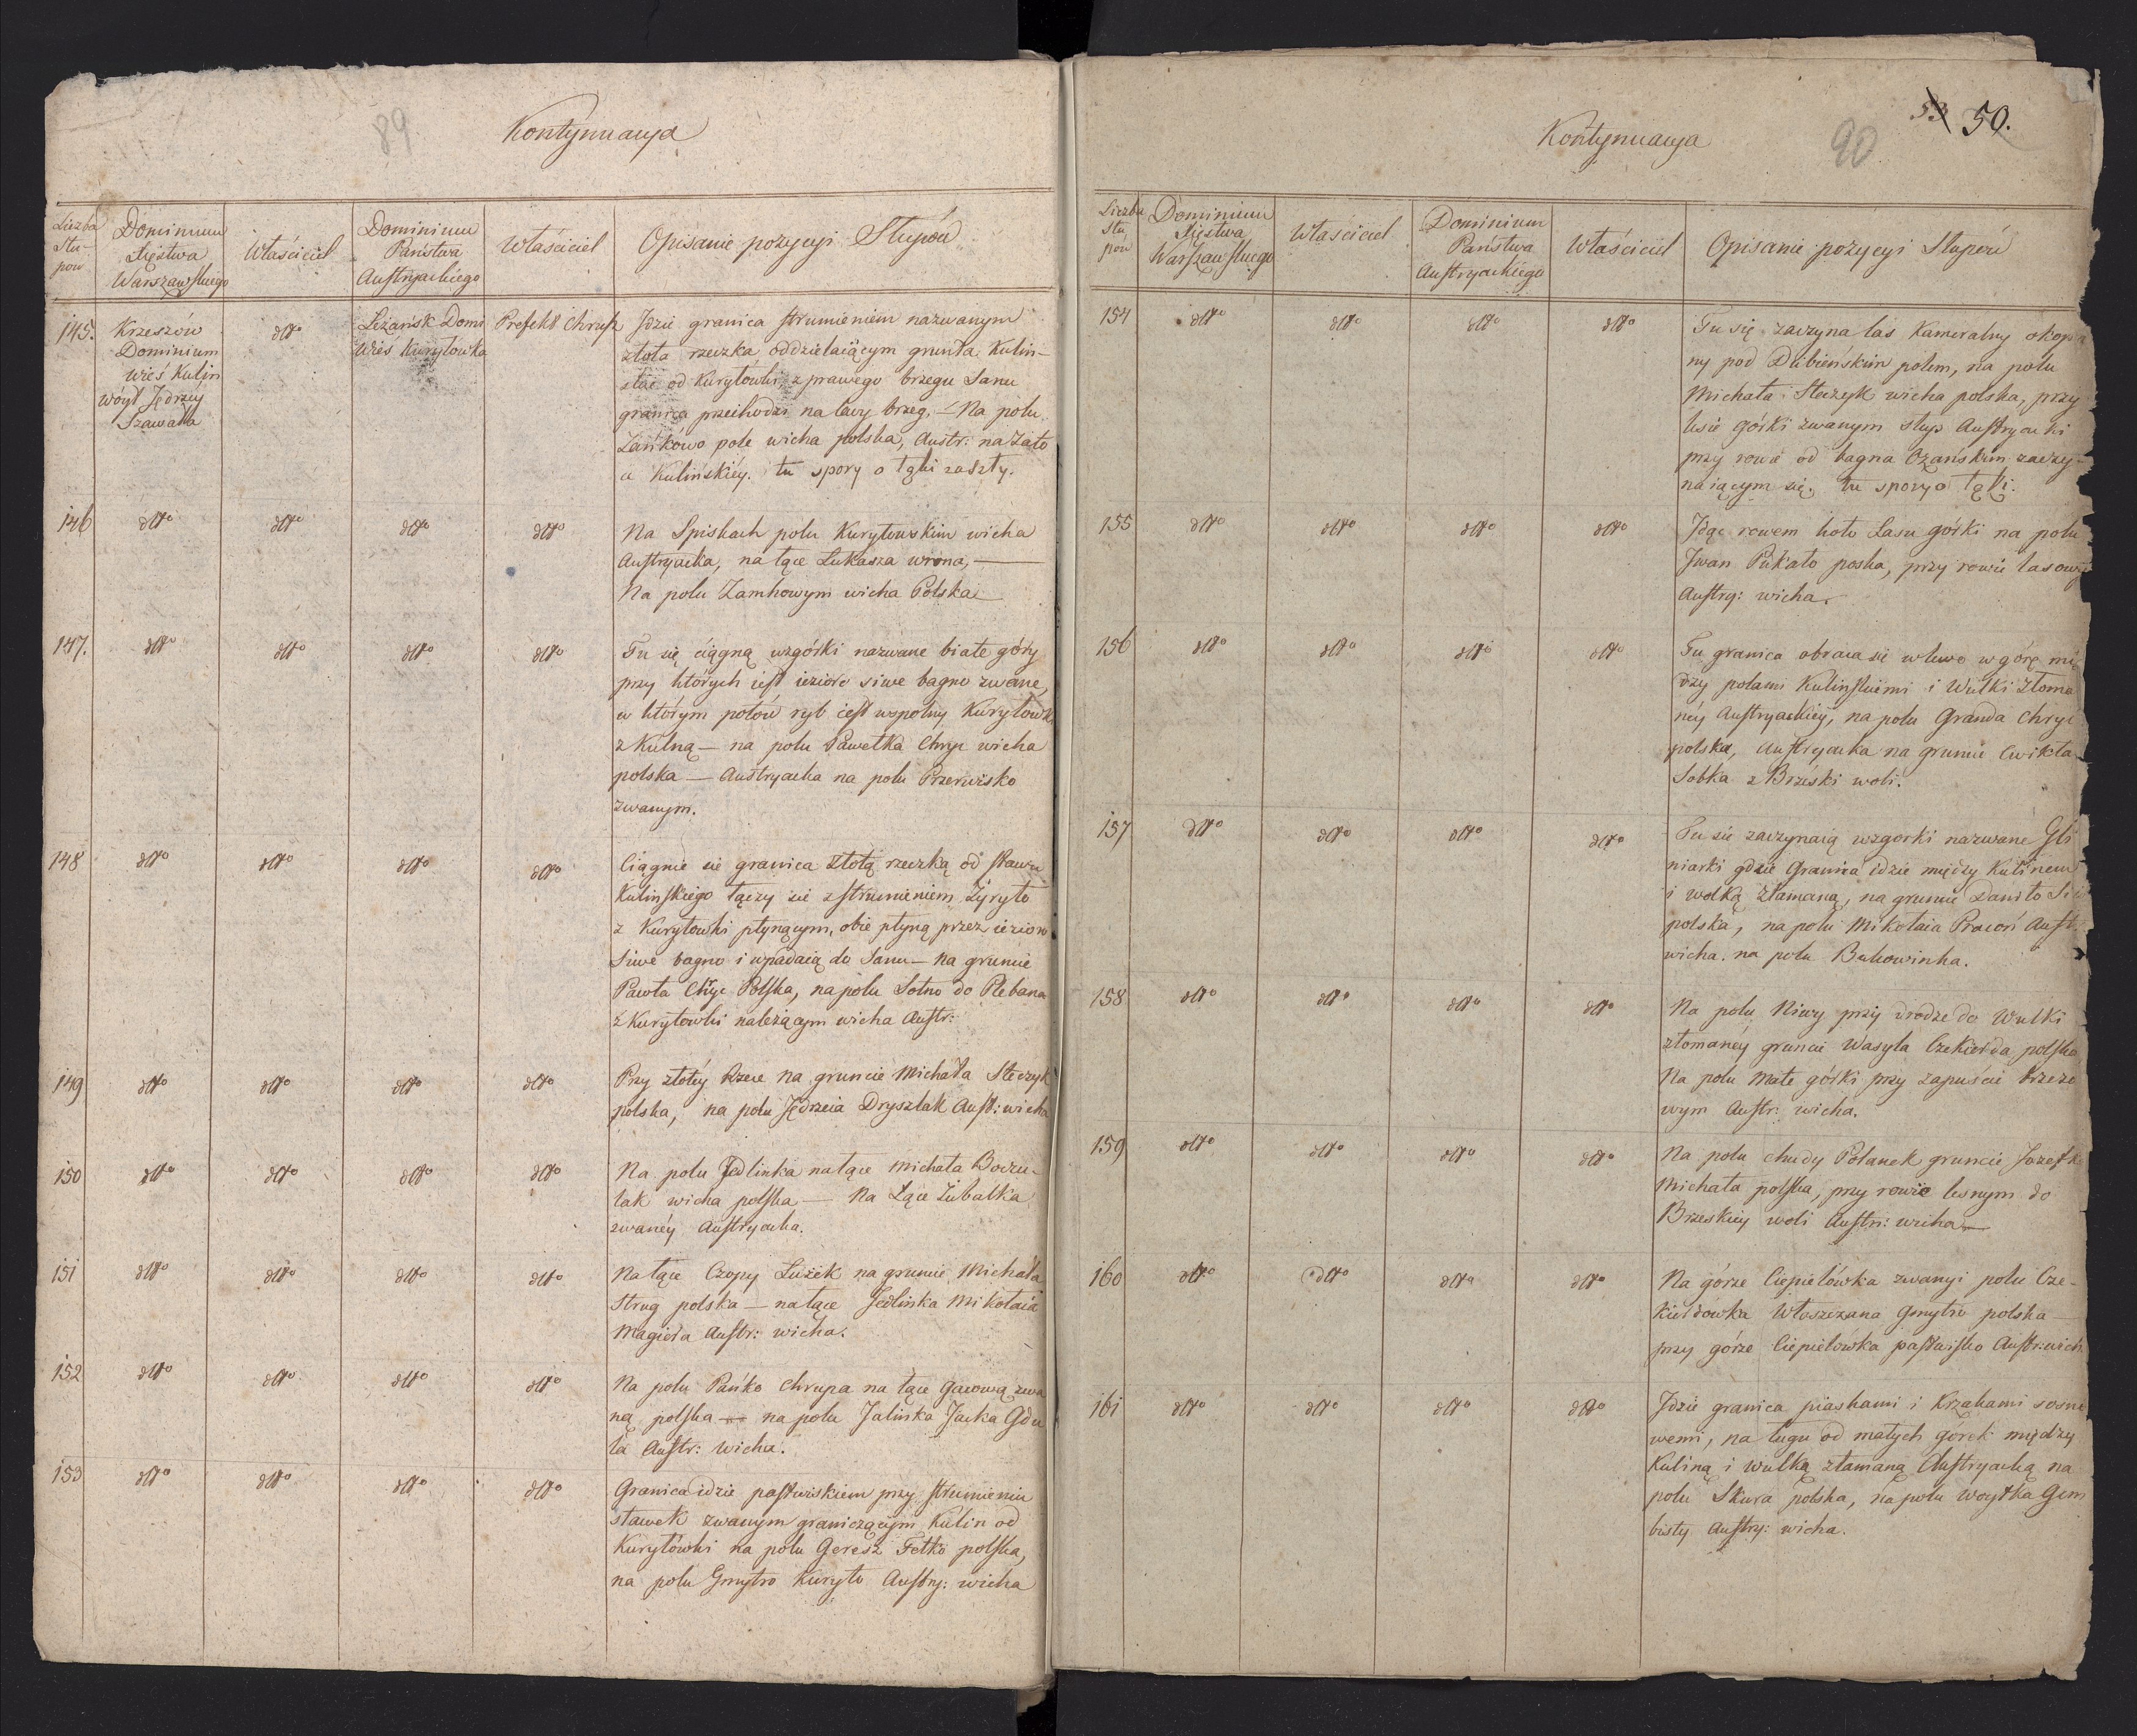 89
Kontynuacya
Liczba Słu- pow
Dominium Xięstwa Warszawskiego
Właściciel
Dominium Państwa Austryackiego
Właściciel
Opisanie pozycyi Słupów
145.
Krzeszów
Dominium
wieś Kulin
wóyt Jędrzey
Szawała
dtto
Leżańsk Domi
wieś Kurytowka
Prefekt Chrusz
Jdzie granica strumieniem nazwanym
złota rzeczka oddzielaiącym grunta Kulin-
skie od Kuryłowki, z prawego brzegu Sanu
granica przechodzi na lewy brzeg. — Na polu
Zańkowo pole wicha polska, Austr: na Zato
ce Kulińskiéy. tu spory o łąki zaszły.
146
dtto
dtto
dtto
dtto
Na Spiskach polu Kuryłowskim wicha
Austryacka, na łące Łukasza wrona, —
Na polu Zamkowym wicha Polska
147.
dtto
dtto
dtto
dtto
Tu się ciągną wzgórki nazwane białe góry
przy których iest iezioro siwe bagno zwane,
w którym połów ryb iest wspolny Kuryłowki
z Kulną — na polu Pawełka Chryc wicha
polska — Austryacka na polu Przerwisko
zwanym.
148
dtto
dtto
dtto
dtto
Ciągnie się granica złotą rzeczką od stawu
Kulinskiego łączy sie z strumieniem Żyryło
z Kuryłowki płynącym, obie płyną przez iezioro
siwe bagno i wpadaią do Sanu — na gruncie
Pawła Chryc Polska, na polu Łotno do Plebana
z Kuryłowki należącym wicha Austr:
149
dtto
dtto
dtto
dtto
Przy złotey Rzece na gruncie Michała Steczyk
polska, na polu Jędrzeia Dryszlak Aust: wicha
150
dtto
dtto
dtto
dtto
Na polu Jedlinka na łące Michała Boczu-
lak wicha polska — Na Łące Żubalka
zwanéy Austryacka.
151
dtto
dtto
dtto
dtto
Na łące Czopy Łużek na gruncie Michała
Strug polska — na łące Jedlinka Mikołaia
Magiera Austr: wicha.
152
dtto
dtto
dtto
dtto
Na polu Pańko Chrupa na łące Gacową zwa
ną polska — na polu Jalinka Jacka Gdu
la Austr: wicha.
153
dtto
dtto
dtto
dtto
Granica idzie pastwiskiem przy strumieniu
stawek zwanym graniczącym Kulin od
Kuryłówki na polu Geresz Fetko polska,
na polu Gmytro Kuryło Austry: wicha
53 50.
90
Kontynuacya
Liczba Słu pów
Dominium Xięstwa Warszawskiego
Właściciel
Dominium Państwa Austryackiego
Właściciel
Opisanie pozycyi Słupów
154
dtto
dtto
dtto
dtto
Tu się zaczyna las Kameralny okopa
ny pod Dubieńskim polem, na polu
Michała Steczyk wicha polska, przy
lesie górki zwanym słup Austryacki
przy rowie od bagna Ozańskim zaczy-
naiącym się. tu spory o łąki.
155
dtto
dtto
dtto
dtto
Jdąc rowem koło Lasu górki na polu
Jwan Pukało poska, przy rowie lasowy
Austry: wicha.
156
dtto
dtto
dtto
dtto
Tu granica obraca sie w lewo w górę mię
dzy polami Kulinskiemi i Wulki złoma
néy Austryackiéy, na polu Granda Chryc
polska, Austryacka na gruncie Cwikła
Sobka z Brzeski woli.
157
dtto
dtto
dtto
dtto
Tu sie zaczynaią wzgorki nazwane Gli
niarki gdzie Granica idzie między Kulinem
i wolką złamaną, na gruncie Daniło
polska, na polu Mikołaia Pracoń Aust.
wicha. na polu Bukowinka.
158
dtto
dtto
dtto
dtto
Na polu Niwy przy drodze do Wulki
złomanéy gruncie Wasyla Czekierda polska
Na polu Małe górki przy zapuście brzezo
wym Austr: wicha.
159
dtto
dtto
dtto
dtto
Na polu chudy Połanek gruncie Jozefka
Michała polska, przy rowie lesnym do
Brzeskiey woli Austri: wicha —
160
dtto
dtto
dtto
dtto
Na górze Ciepielówka zwanyi polu Cze-
kierdowka Włoszczana Gmytro polska —
przy górze Ciepielowka pastwisko Austr: wich
161
dtto
dtto
dtto
dtto
Jdzie granica piaskami i Krzakami sosno
wemi, na ługu od małych górek między
Kuliną i wulką złamaną Austryacką na
polu Skura polska, na polu Woytka Gem
bisty Austry: wicha.